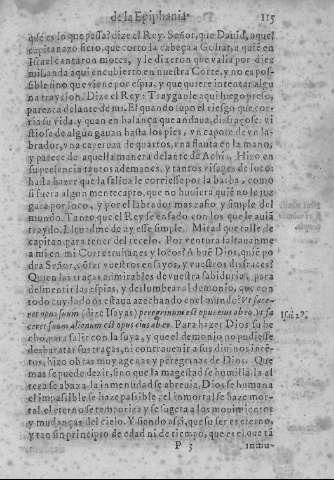 de la Epiphania. 115
qué es lo que passa? dize el Rey. Señor, que Dauid, aquel
capitanazo fiero, que cortò la cabeça a Goliat, a quiē en
Israel cantaron motes, y le dizeron que valia por diez
mil, anda aqui encubierto en nuestra Corte, y no es pos-
sible sino que viene por espia, y que quiere intentar algu
na traycion. Dize el Rey: Trayganle aqui luego preso,
parezca delante de mi. El quando supo el riesgo que cor-
ria su vida, y quan en balança que andaua, disfraçose: vi
stiose de algun gauan hasta los pies, vn capote de vn la-
brador, vna caperuza de quartos, vna flauta en la mano,
y parece de aquella manera delante de Achis. Hizo en
su presencia tantos ademanes, y tantos visages de loco:
hasta hazer que la saliua le corriesse por la barba, como
si fuera algun mentecapto, que no huuiera quiē no le juz
gara por loco, y por el labrador mas zafio, y simple del
mundo. Tanto que el Rey se enfadò con los que le auiā
traydo. Lleuadme de ay esse simple. Mirad que talle de
capitan para tener del recelo. Por ventura faltauanme
a mi en mi Corte truhanes y locos? A buē Dios, quiē po
drà Señor, cōtar vuestros ensayos, y vuestros disfraces?
Quien las traças admirables de vuestra sabiduria, para
desmentir las espias, y deslumbrar al demonio, que con
todo cuydado os estaua azechando en el mundo? Vt face-
ret opus suum (dize Isayas) peregrinum est opus eius ab eo. Vt fa
ceret suum alienum est opus eius ab eo. Para hazer Dios su he
cho, para salir con la suya, y que el demonio no pudiesse
desbaratar sus traças, ni contrauenir a sus diuinos intē-
tos, hizo obras muy agenas y peregrinas de Dios. Que
mas se puede dezir, sino que la magestad se humilla, la al
teza se abaxa, la inmensidad se abreuia, Dios se humana
el impassible se haze passible, el inmortal se haze mor-
tal, el eterno se temporiza y se sugeta a los mouimientos
y mudanças del cielo. Y siendo assi, que su ser es eterno,
y tan sin principio de edad ni de tiempo, que es el que tā
P 3
Isai. 28.